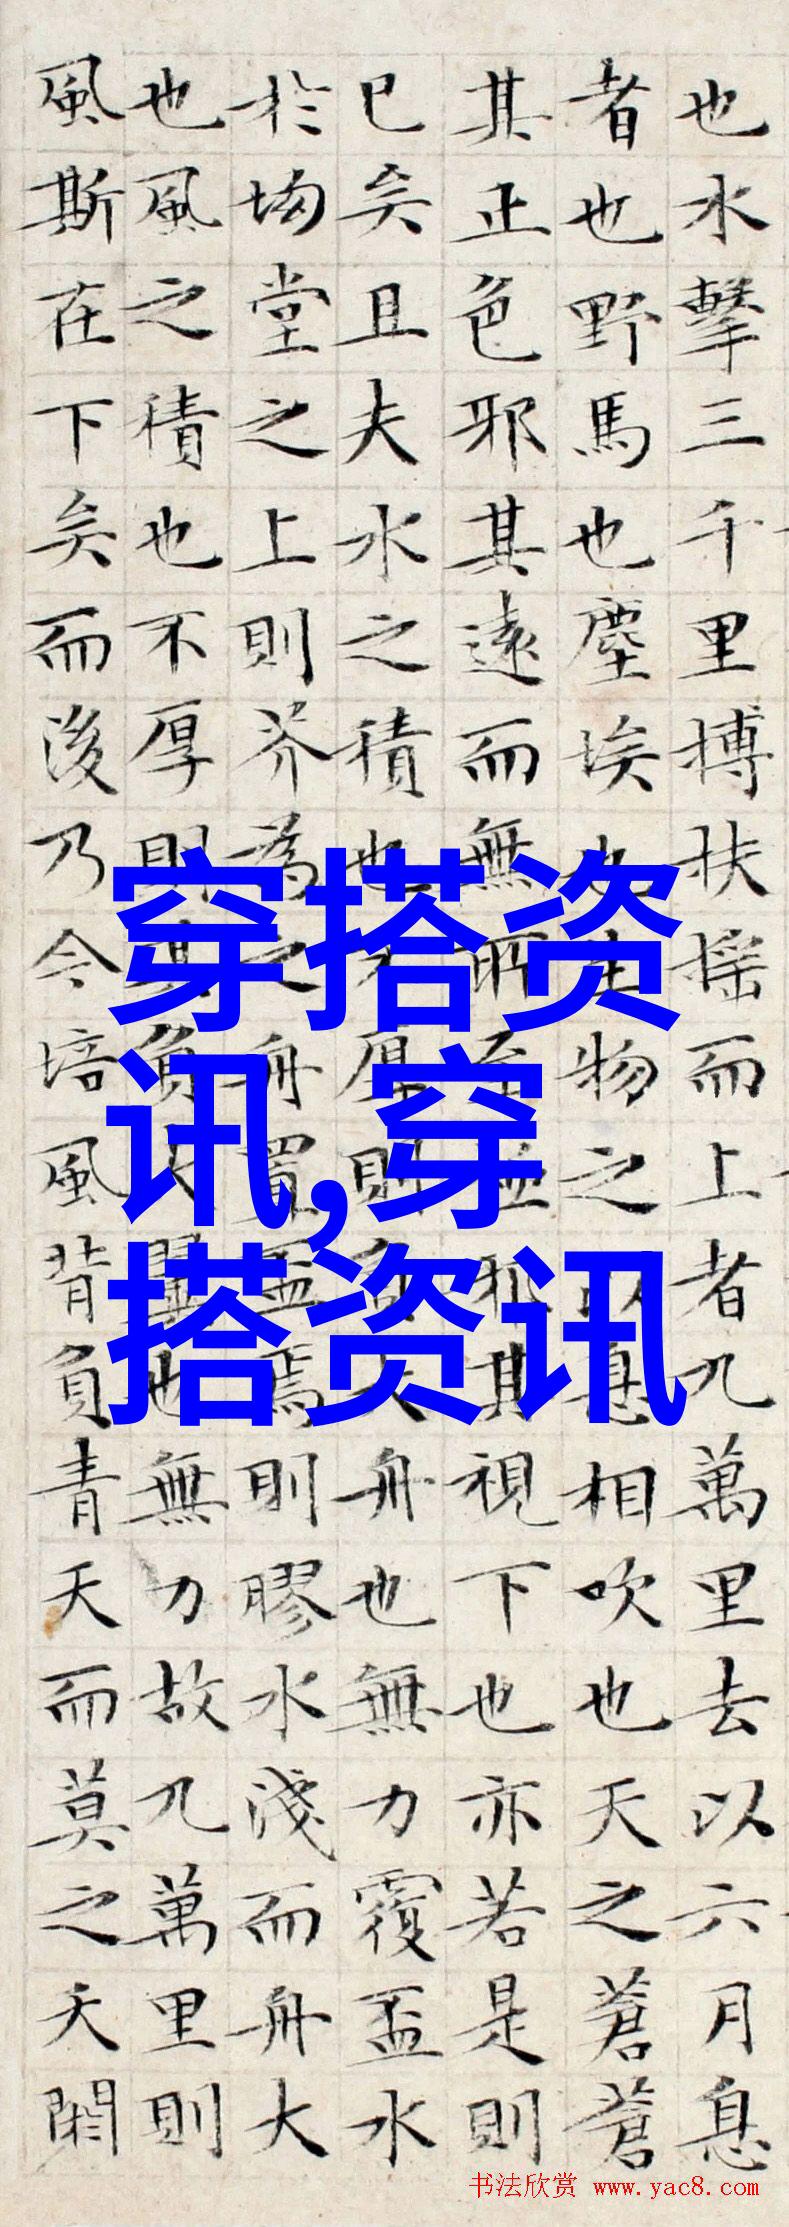 也水擊三千里搏扶摇而上者九萬里去以六月息
者也野馬也塵埃也生物之以息相吹也天之蒼蒼
其正色邪其遠而無所至邪其視下也亦若是則
已矣且夫水之積也不厚則負大舟也無力覆盃水
於坳堂之上則芥為之舟置盃焉則膠水淺而舟大
也風之積也不厚則其負大翼也無力故九萬里則
風斯在下矣而後乃今培風背負青天而莫之夭閼
穿搭资
讯,穿
搭资讯
书法欣赏 www.yac8.com